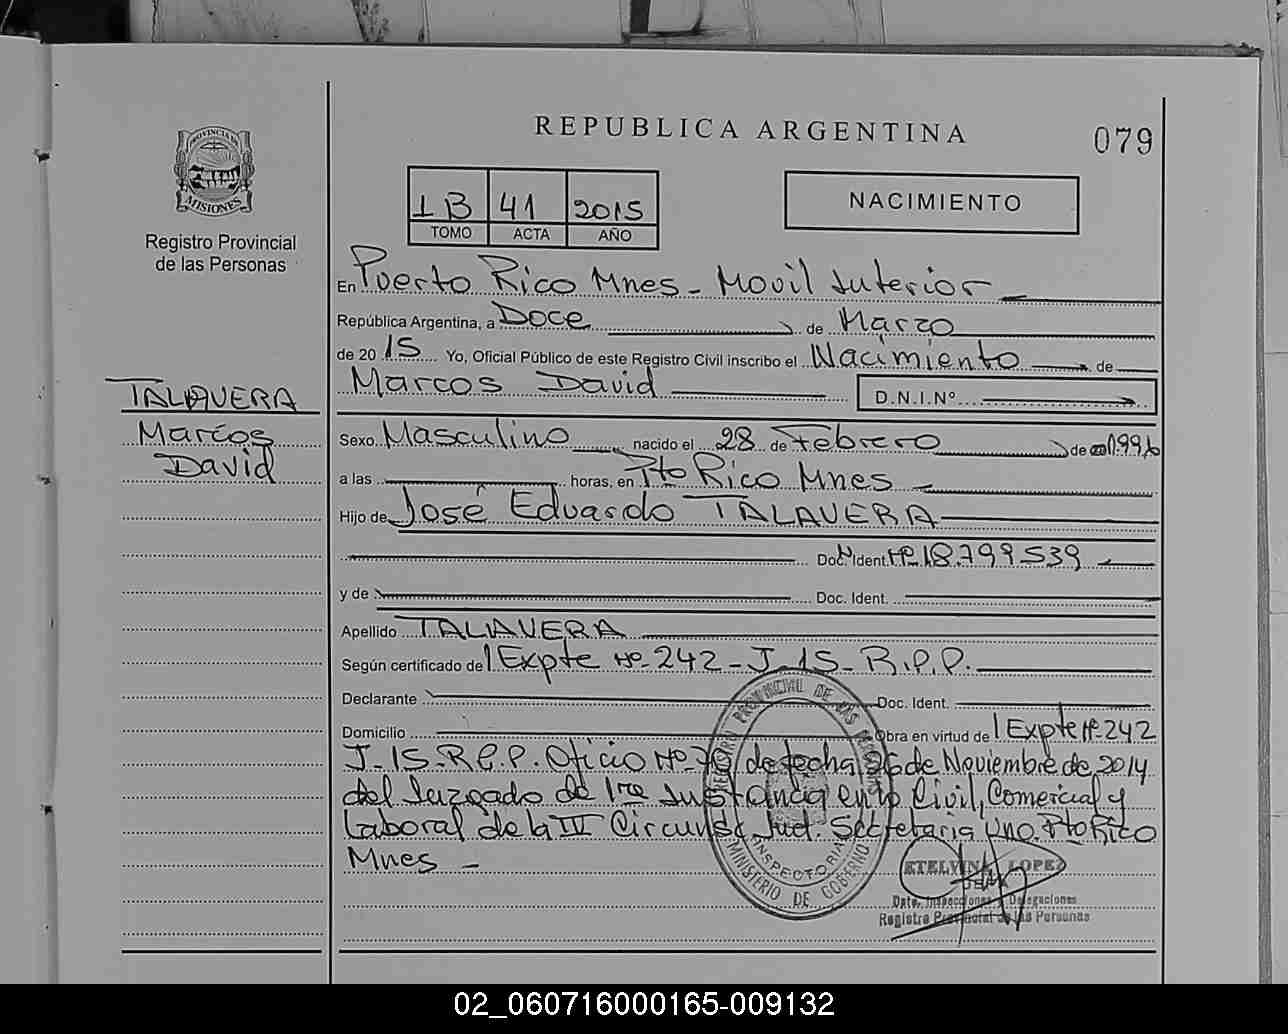 REPUBLICA ARGENTINA
079
PROVINCIA DE
MISIONES
Registro Provincial
de las Personas
1B 41 2015
TOMO ACTA AÑO
NACIMIENTO
En Puerto Rico Mnes - Movil Interior
República Argentina, a Doce de Marzo
de 20 15 Yo, Oficial Público de este Registro Civil inscribo el Nacimiento de
Marcos David D.N.I.Nº
TALAVERA
Marcos
David
Sexo Masculino nacido el 28 de Febrero de 1996
a las horas, en Pto Rico Mnes
Hijo de José Eduardo TALAVERA
Doc. Ident. Nº 18.799539
y de Doc. Ident.
Apellido TALAVERA
Según certificado de Expte Nº 242 - J - 15 - R.P.P.
Declarante Doc. Ident.
Domicilio Obra en virtud de Expte Nº 242
J - 15 - R.P.P. Oficio Nº 70 de fecha 26 de Noviembre de 2014
del Juzgado de 1ra Instancia en lo Civil, Comercial y
Laboral de la III Circunsc. Jud. Secretaria Uno. Pto Rico
Mnes -
REGISTRO PROVINCIAL DE LAS PERSONAS
INSPECTORIA
MINISTERIO DE GOBIERNO
ETELVINA LOPEZ
Dpto. Inspecciones y Delegaciones
Registro Provincial de las Personas
02_060716000165-009132